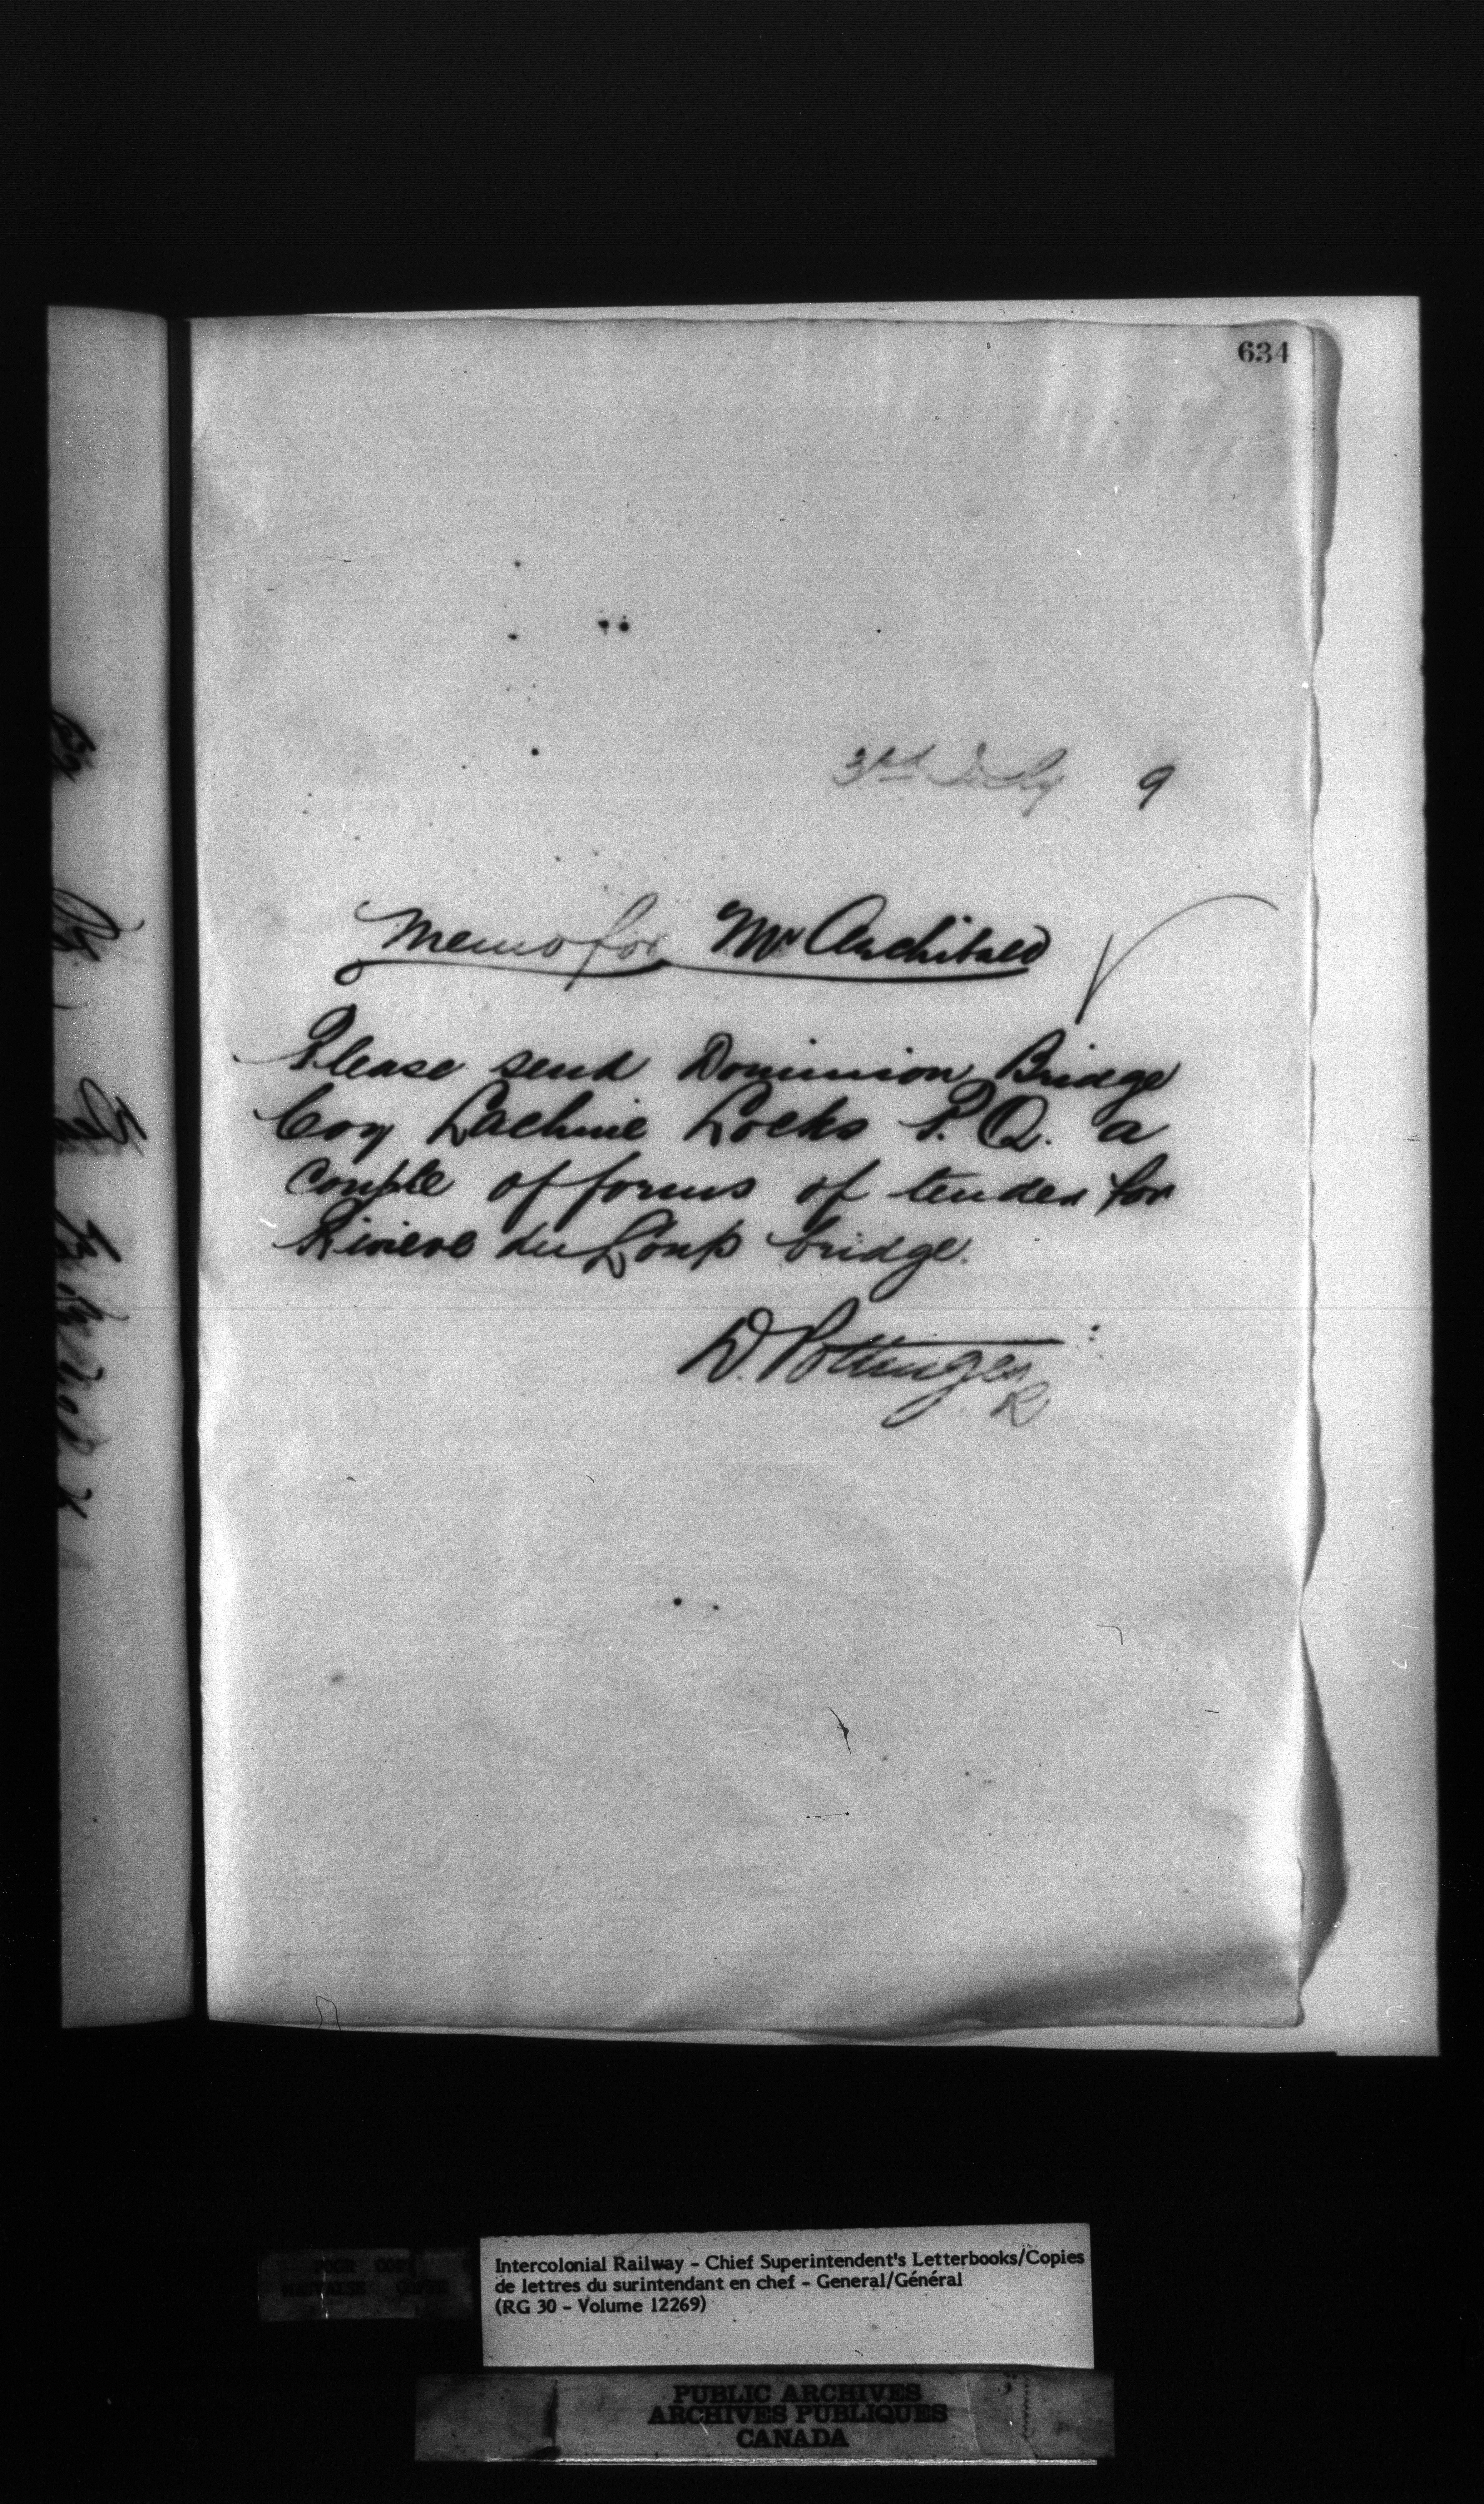 634
3rd July 9
Memo for Mr Archibald
Please send Dominion Bridge
Coy Lachine Locks P.Q. a
couple of forms of tender for
Riviere du Loup bridge.
D. Pottinger
R
POOR COPY
MAUVAISE COPIE
Intercolonial Railway - Chief Superintendent's Letterbooks/Copies
de lettres du surintendant en chef - General/Général
(RG 30 - Volume 12269)
PUBLIC ARCHIVES
ARCHIVES PUBLIQUES
CANADA